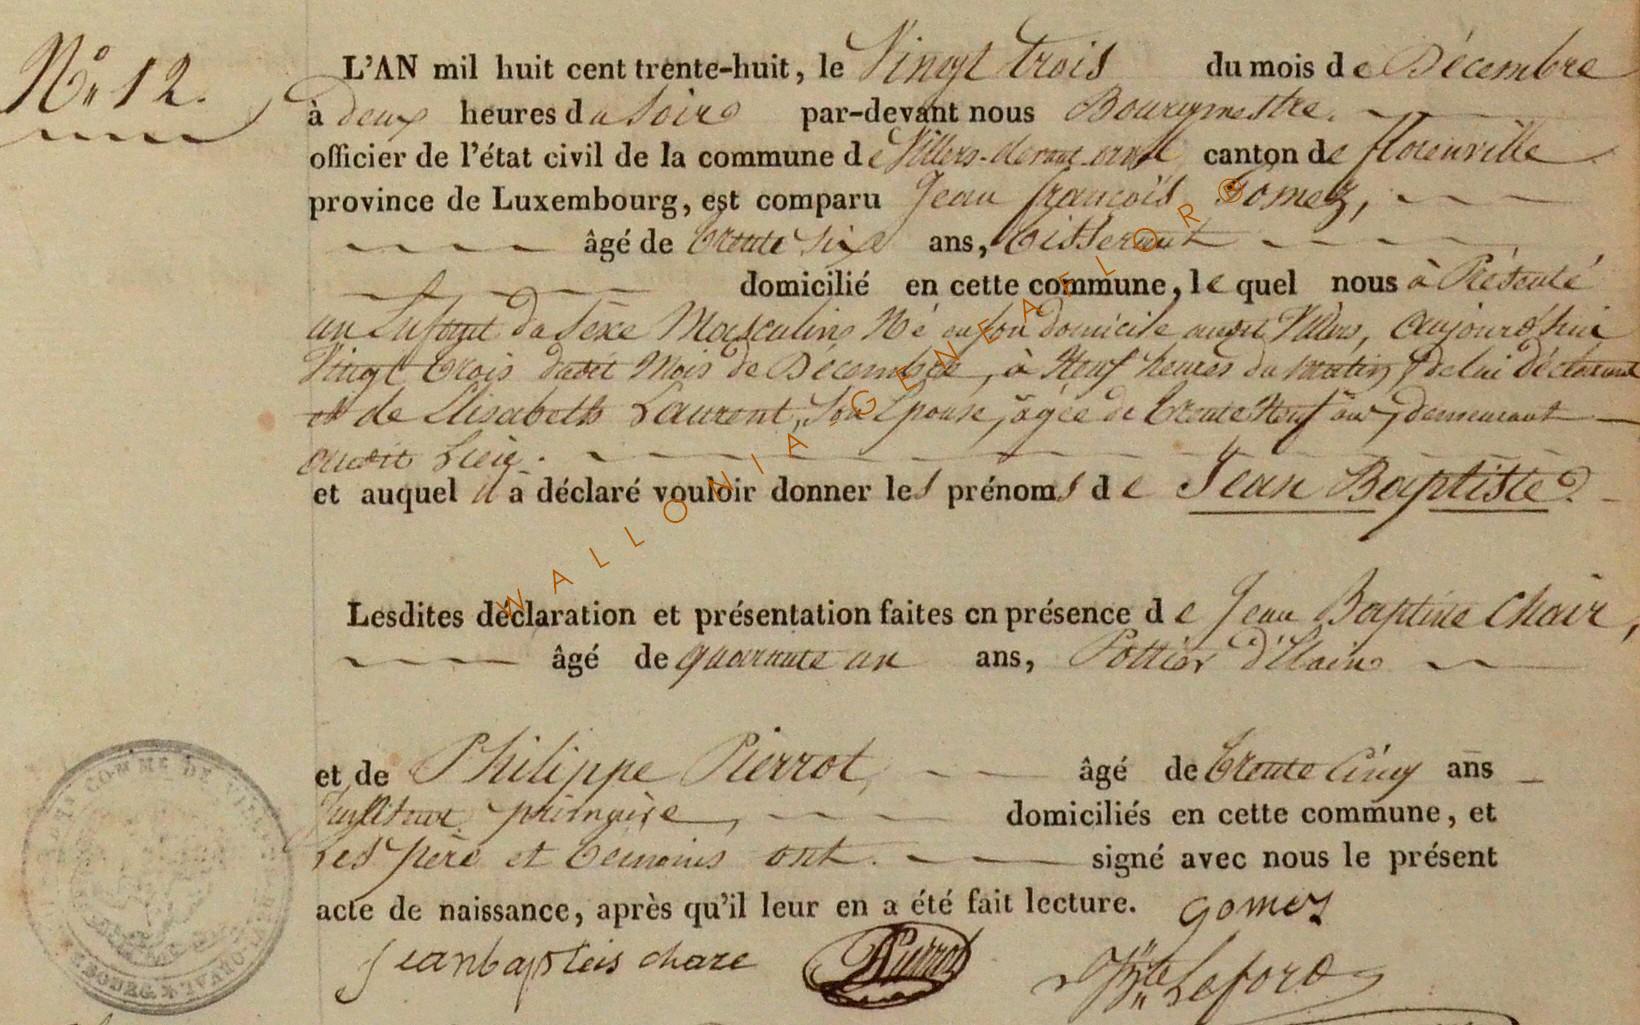 N° 12.
L'AN mil huit cent trente-huit, le Vingt trois du mois de Décembre
à deux heures du soir par-devant nous Bourgmestre.
officier de l'état civil de la commune de Villers-devant-orval canton de florenville
province de Luxembourg, est comparu Jean françois Gomez,
âgé de trente six ans, tisserant
domicilié en cette commune, le quel nous à Présenté
un Enfant du Sexe Masculin Né en son domicile audit Villers, aujourd'hui
Vingt trois dudit Mois de Décembre, à Neuf heures du matin, de lui déclarant
et de Elisabeth Laurent, son Epouse, âgée de trente Neuf ans, demeurant
audit Lieu.
et auquel il a déclaré vouloir donner les prénoms de Jean Baptiste
Lesdites déclaration et présentation faites en présence de Jean Baptiste Chair,
âgé de quarante un ans, Pottier d'Etain
et de Philippe Pierrot, âgé de trente Cinq ans
Instituteur primaire, domiciliés en cette commune, et
les père et temoins ont signé avec nous le présent
acte de naissance, après qu'il leur en a été fait lecture. gomez
jeanbapteis chare Pierrot Leford
WALLONIA-GENEAFLOR©
COMME DE VILLERS